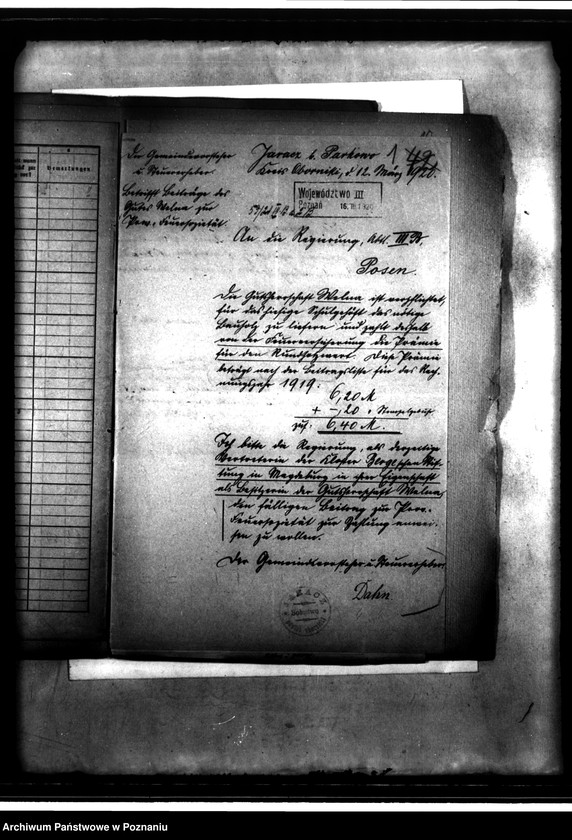 Bemerkungen.
Der Gemeindevorsteher
u. Steuererheber.
Jaracz b. Parkowo
Kreis Obornik, d. 12. März 1920.
49
Betrifft Beiträge des
Gutes Welna zur
Prov. Feuersozietät.
Województwo III
Poznań
An die Regierung, Abtl. III B.
Posen.
Die Gutsherrschaft Welna ist verpflichtet,
für das hiesige Schulgehöft das nötige
Bauholz zu liefern und zahlt deshalb
von der Feuerversicherung die Prämie
für den Rundholzwert. Diese Prämie
beträgt nach der Beitragsliste für das Rech-
nungsjahr 1919:
6,20 M
+ -,20 " Stempelgebühr
zus. 6,40 M.
Ich bitte die Regierung, als derzeitige
Vertreterin der Kloster Bergeschen Stif-
tung in Magdeburg in ihrer Eigenschaft
als Besitzerin der Gutsherrschaft Welna
den fälligen Beitrag zur Prov.
Feuersozietät zur Zahlung anwei-
sen zu wollen.
Der Gemeindevorsteher u. Steuererheber.
Dahn
JARACZ
Archiwum Państwowe w Poznaniu